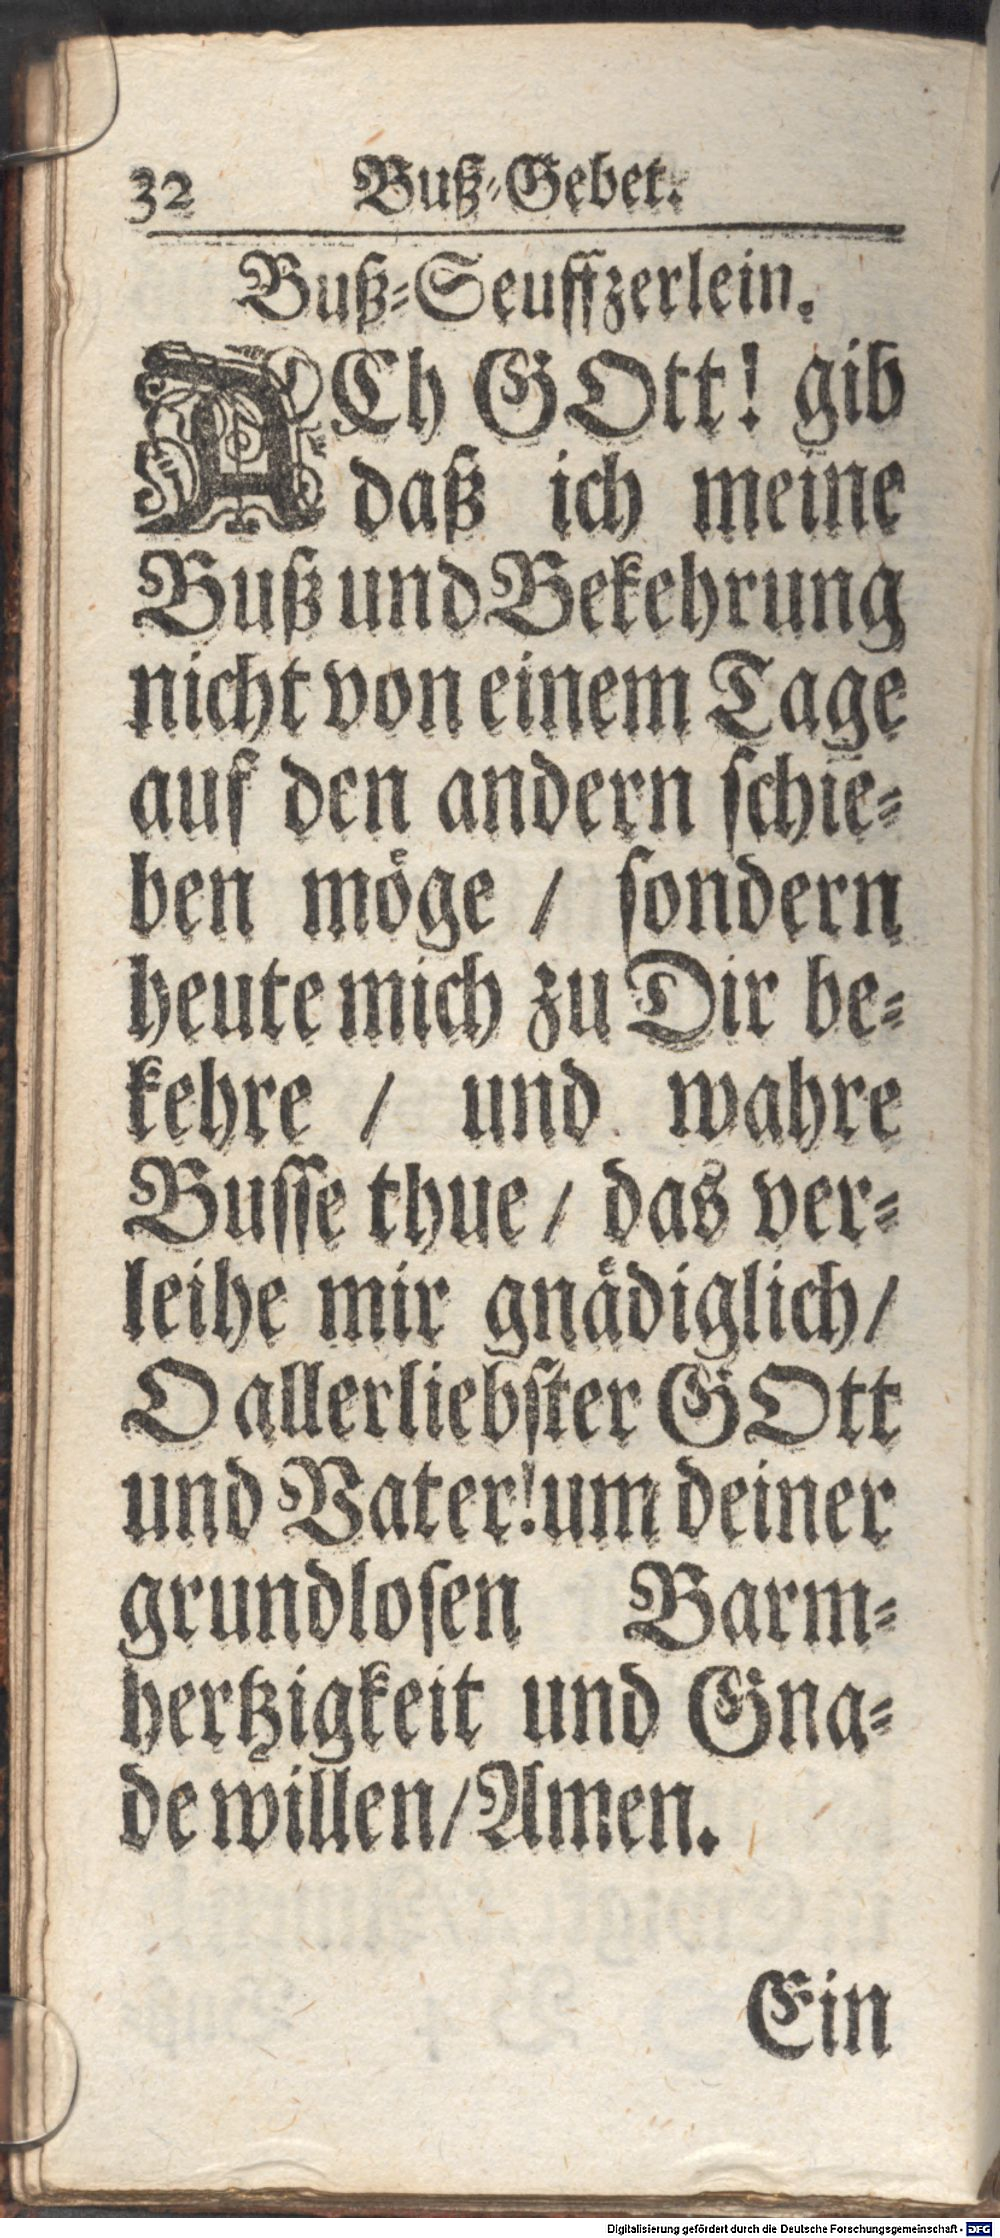 32 Buß-Gebet.
Buß-Seuffzerlein.
ACh GOtt! gib
daß ich meine
Buß und Bekehrung
nicht von einem Tage
auf den andern schie-
ben möge / sondern
heute mich zu Dir be-
kehre / und wahre
Busse thue / das ver-
leihe mir gnädiglich/
O allerliebster GOtt
und Vater! um deiner
grundlosen Barm-
hertzigkeit und Gna-
de willen/Amen.
Ein
Digitalisierung gefördert durch die Deutsche Forschungsgemeinschaft - DFG